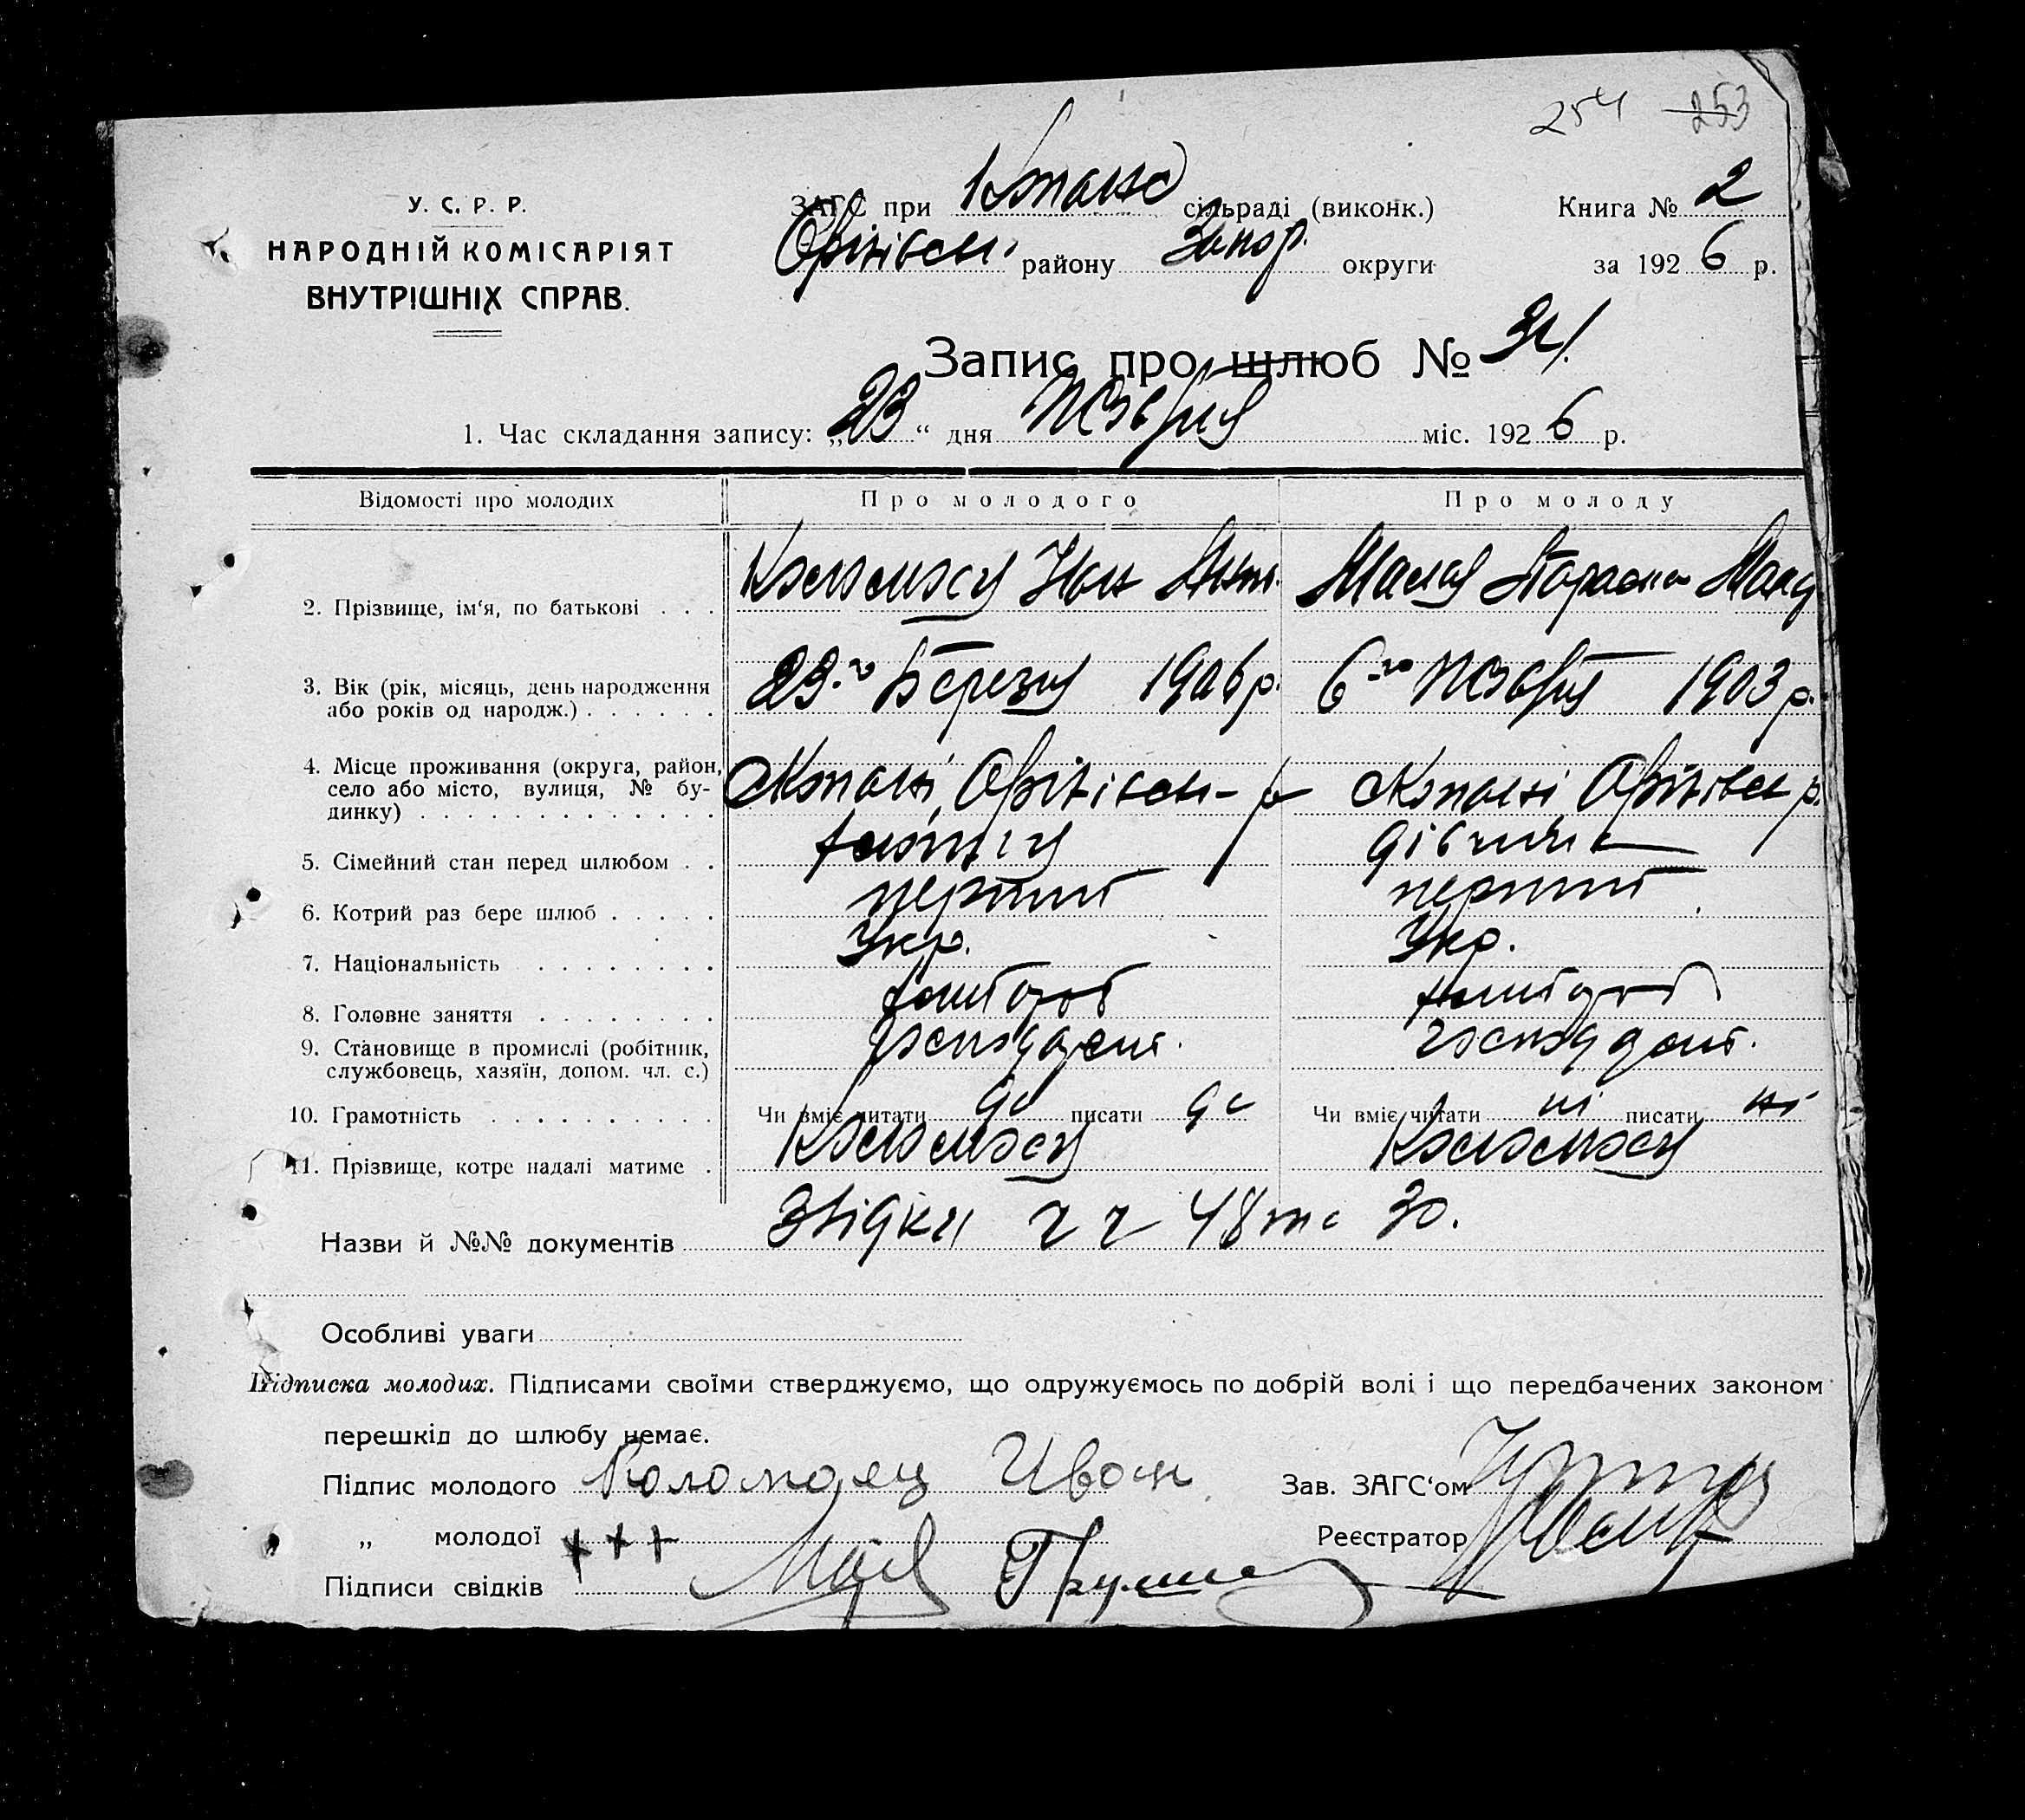 254 253
У. С. Р. Р.
НАРОДНІЙ КОМІСАРІЯТ
ВНУТРІШНІХ СПРАВ.
ЗАГС при сільраді (виконк.) Книга № 2
Оріхівськ. району Запор. округи за 1926 р.
Запис про шлюб №
1. Час складання запису: „23“ дня Жовтня міс. 1926 р.
Відомості про молодих Про молодого Про молоду
2. Прізвище, ім'я, по батькові . . . Коломоєць Іван Малая Параска
3. Вік (рік, місяць, день народження
або років од народж.) . . . . . . 29-го Березня 1906 р. 6-го Жовтня 1903 р.
4. Місце проживання (округа, район,
село або місто, вулиця, № бу-
динку) . . . . . . . . . . . . . Оріхівськ Оріхівськ р.
5. Сімейний стан перед шлюбом . . дівчина
6. Котрий раз бере шлюб . . . . . перший перший
7. Національність . . . . . . . . Укр. Укр.
8. Головне заняття . . . . . . . . хлібороб хлібороб
9. Становище в промислі (робітник,
службовець, хазяїн, допом. чл. с.)
10. Грамотність . . . . . . . . . . Чи вміє читати да писати да Чи вміє читати ні писати ні
11. Прізвище, котре надалі матиме . Коломоєць Коломоєць
Назви й №№ документів Звідки ч ч 48 та 30.
Особливі уваги
Підписка молодих. Підписами своїми стверджуємо, що одружуємось по добрій волі і що передбачених законом
перешкід до шлюбу немає.
Підпис молодого Коломоец Иван Зав. ЗАГС'ом
„ молодої +++ Реєстратор
Підписи свідків